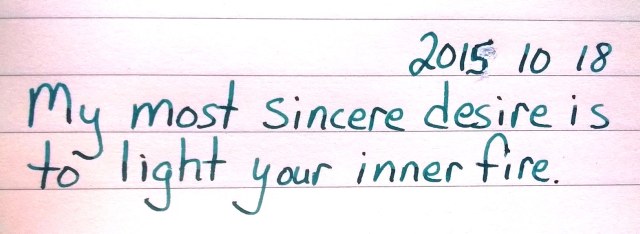 2015 10 18
My most sincere desire is
to light your inner fire.